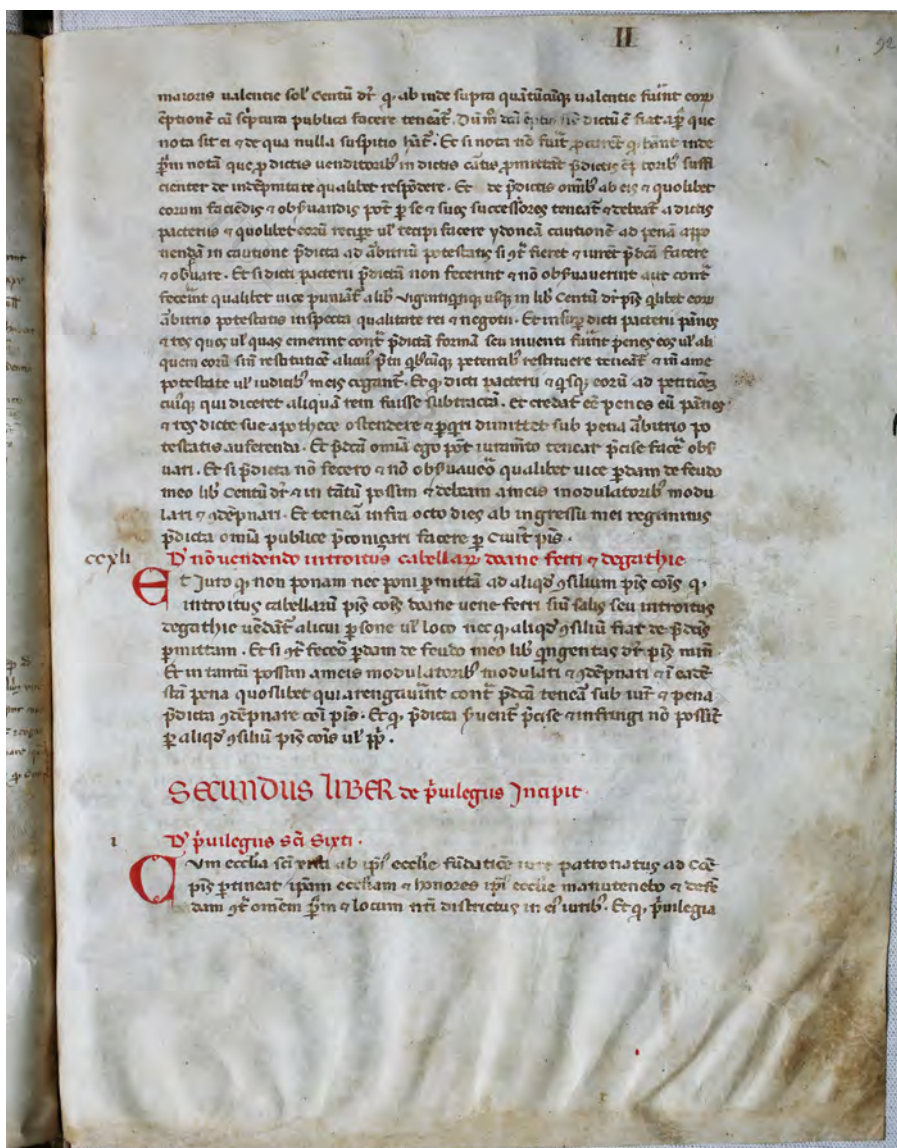 II
92
maioris ualentie sol' Centũ dr̃ q, ab inde supra quãtũcũq; ualentie fuĩnt eorp
ẽptionẽ cũ sc̃ptura publica facere teneãt̃. Dũm̃ ẽptio dictũ ẽ fiat ap̃ que
nota sit ei ⁊ de qua nulla suspitio hãt̃. Et si nota nõ fuĩt inde
p̃m notã que p̱ dictis uenditorib' in dictis cãtis p̱mittãt̃ p̃dictis suffi
cienter de indẽpnitate qualibet respõdere. Et de p̃dictis om̃ib' ab eis ⁊ quolibet
eorum faciẽdis ⁊ obs̃uandis põt p̱ se ⁊ suos successores teneãt̃ ⁊ debeãt̃ a dictis
pacteriis ⁊ quolibet eorũ recipe ul' recipi facere ydoneã cautionẽ ad penã appo
nendã in cautione p̃dicta ad ãbitriũ potestatis si ꝯt̃ fieret ⁊ iurẽt p̃dc̃a facere
⁊ obs̃uare. Et si dicti pacterii p̃dictã non fecerint ⁊ nõ obs̃uauerint aut cont̃
feceĩnt qualibet uice puniãt̃ a lib' vigintiquinq; usq; in lib' Centũ dr̃ pis̃ q̃libet eorp
ãbitrio potestatis inspecta qualitate rei ⁊ negotii. Et insup̱ dicti pacterii pãnos
⁊ res quos ul' quas emerint cont̃ p̃dictã formã seu inuenti fuĩnt penes eos ul' ali
quem eorũ sñ restitutiõe alicui' p̃tii qb'cũq; petentib' restituere teneãt̃ ⁊ in̄ a me
potestate ul' iudicib' meis cogant̃. Et q, dicti pacterii ⁊ q̃sq; eorũ ad petitiõez
cui'q; qui diceret aliquã rem fuisse subtractã. et credat eẽ penes eũ pãnos
⁊ res dicte sue apothece ostendere ⁊ p̱q̃ri dimittet sub pena ãbitrio po
testatis auferenda. Et p̃dc̃a om̃ia ego põt iuram̃to tenear p̃cise facẽ obs̃
uari. Et si p̃dicta nõ fecero ⁊ nõ obs̃uaueõ qualibet uice p̱dam de feudo
meo lib' Centũ dr̃ ⁊ in tãtũ possim ⁊ debeam a meis modulatorib' modu
lari ⁊ ꝯdẽpnari. Et teneã infra octo dies ab ingressu mei regiminis
p̃dicta om̃ia publice p̃conicari facere p̱ Ciuit̃ pis̃.
ccxli
D' nõ uendendo introitus cabellarp doane ferri ⁊ degathie
Et Juro q, non ponam nec poni p̱mittã ad aliqd' ꝯsilium pis̃ cõis q,
introitus cabellarũ pis̃ cõis doane uene ferri siũ salis seu introitus
degathie uẽdãt̃ alicui p̱sone ul' loco nec q, aliqd' ꝯsiliũ fiat de p̃dc̃is
p̱mittam. Et si ꝯt̃ feceõ p̱dam de feudo meo lib' qngentas dr̃ pis̃ min̄.
Et in tantũ possim a meis modulatorib' modulari ⁊ ꝯdẽpnari ⁊ ĩ eadẽ
st̃i pena quoslibet qui arengauĩnt cont̃ p̃dc̃a teneã sub iur̃ ⁊ pena
p̃dicta ꝯdẽpnare cõi pis̃. Et q, p̃dicta s̃uent̃ p̃cise ⁊ infringi nõ possĩt
p̱ aliqd' ꝯsiliũ pis̃ cõis ul' pp̃.
SECUNDUS LIBER de p̃uilegiis Incipit.
i
D' p̃uilegiis sc̃i Sixti.
Cum ecclia sc̃i xisti ab ip̃i' ecclie fũdatiõe iure patronatus ad Cõe
pis̃ p̱tineat ip̃am eccliam ⁊ honores ip̃i' ecclie manutenebo ⁊ defẽ
dam ꝯt̃ omẽm p̃m ⁊ locum nr̃i districtus in ei' iurib'. Et q, p̃uilegia